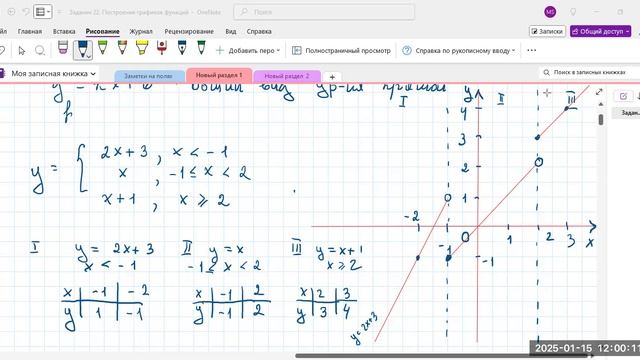 Задании 22. Построение графиков функций - OneNote
Поиск
MS
Файл Главная Вставка Рисование Журнал Рецензирование Вид Справка
Записки
Общий доступ
Добавить перо
Полноэкранный просмотр
Справка по рукописному вводу
Моя записная книжка
Заметки на полях
Новый раздел 1
Новый раздел 2
+
Поиск в записных книжках
Задан...
y = kx + b общий вид ур-ия прямая
y = { 2x+3, x < -1
x, -1 ≤ x < 2
x+1, x ≥ 2
I y = 2x+3 II y = x III y = x+1
x < -1 -1 ≤ x < 2 x ≥ 2
x -1 -2 x -1 2 x 2 3
y 1 -1 y -1 2 y 3 4
I II III
y
4
3
2
1
-2 -1 0 1 2 3 x
-1
y=2x+3
2025-01-15 12:00:1